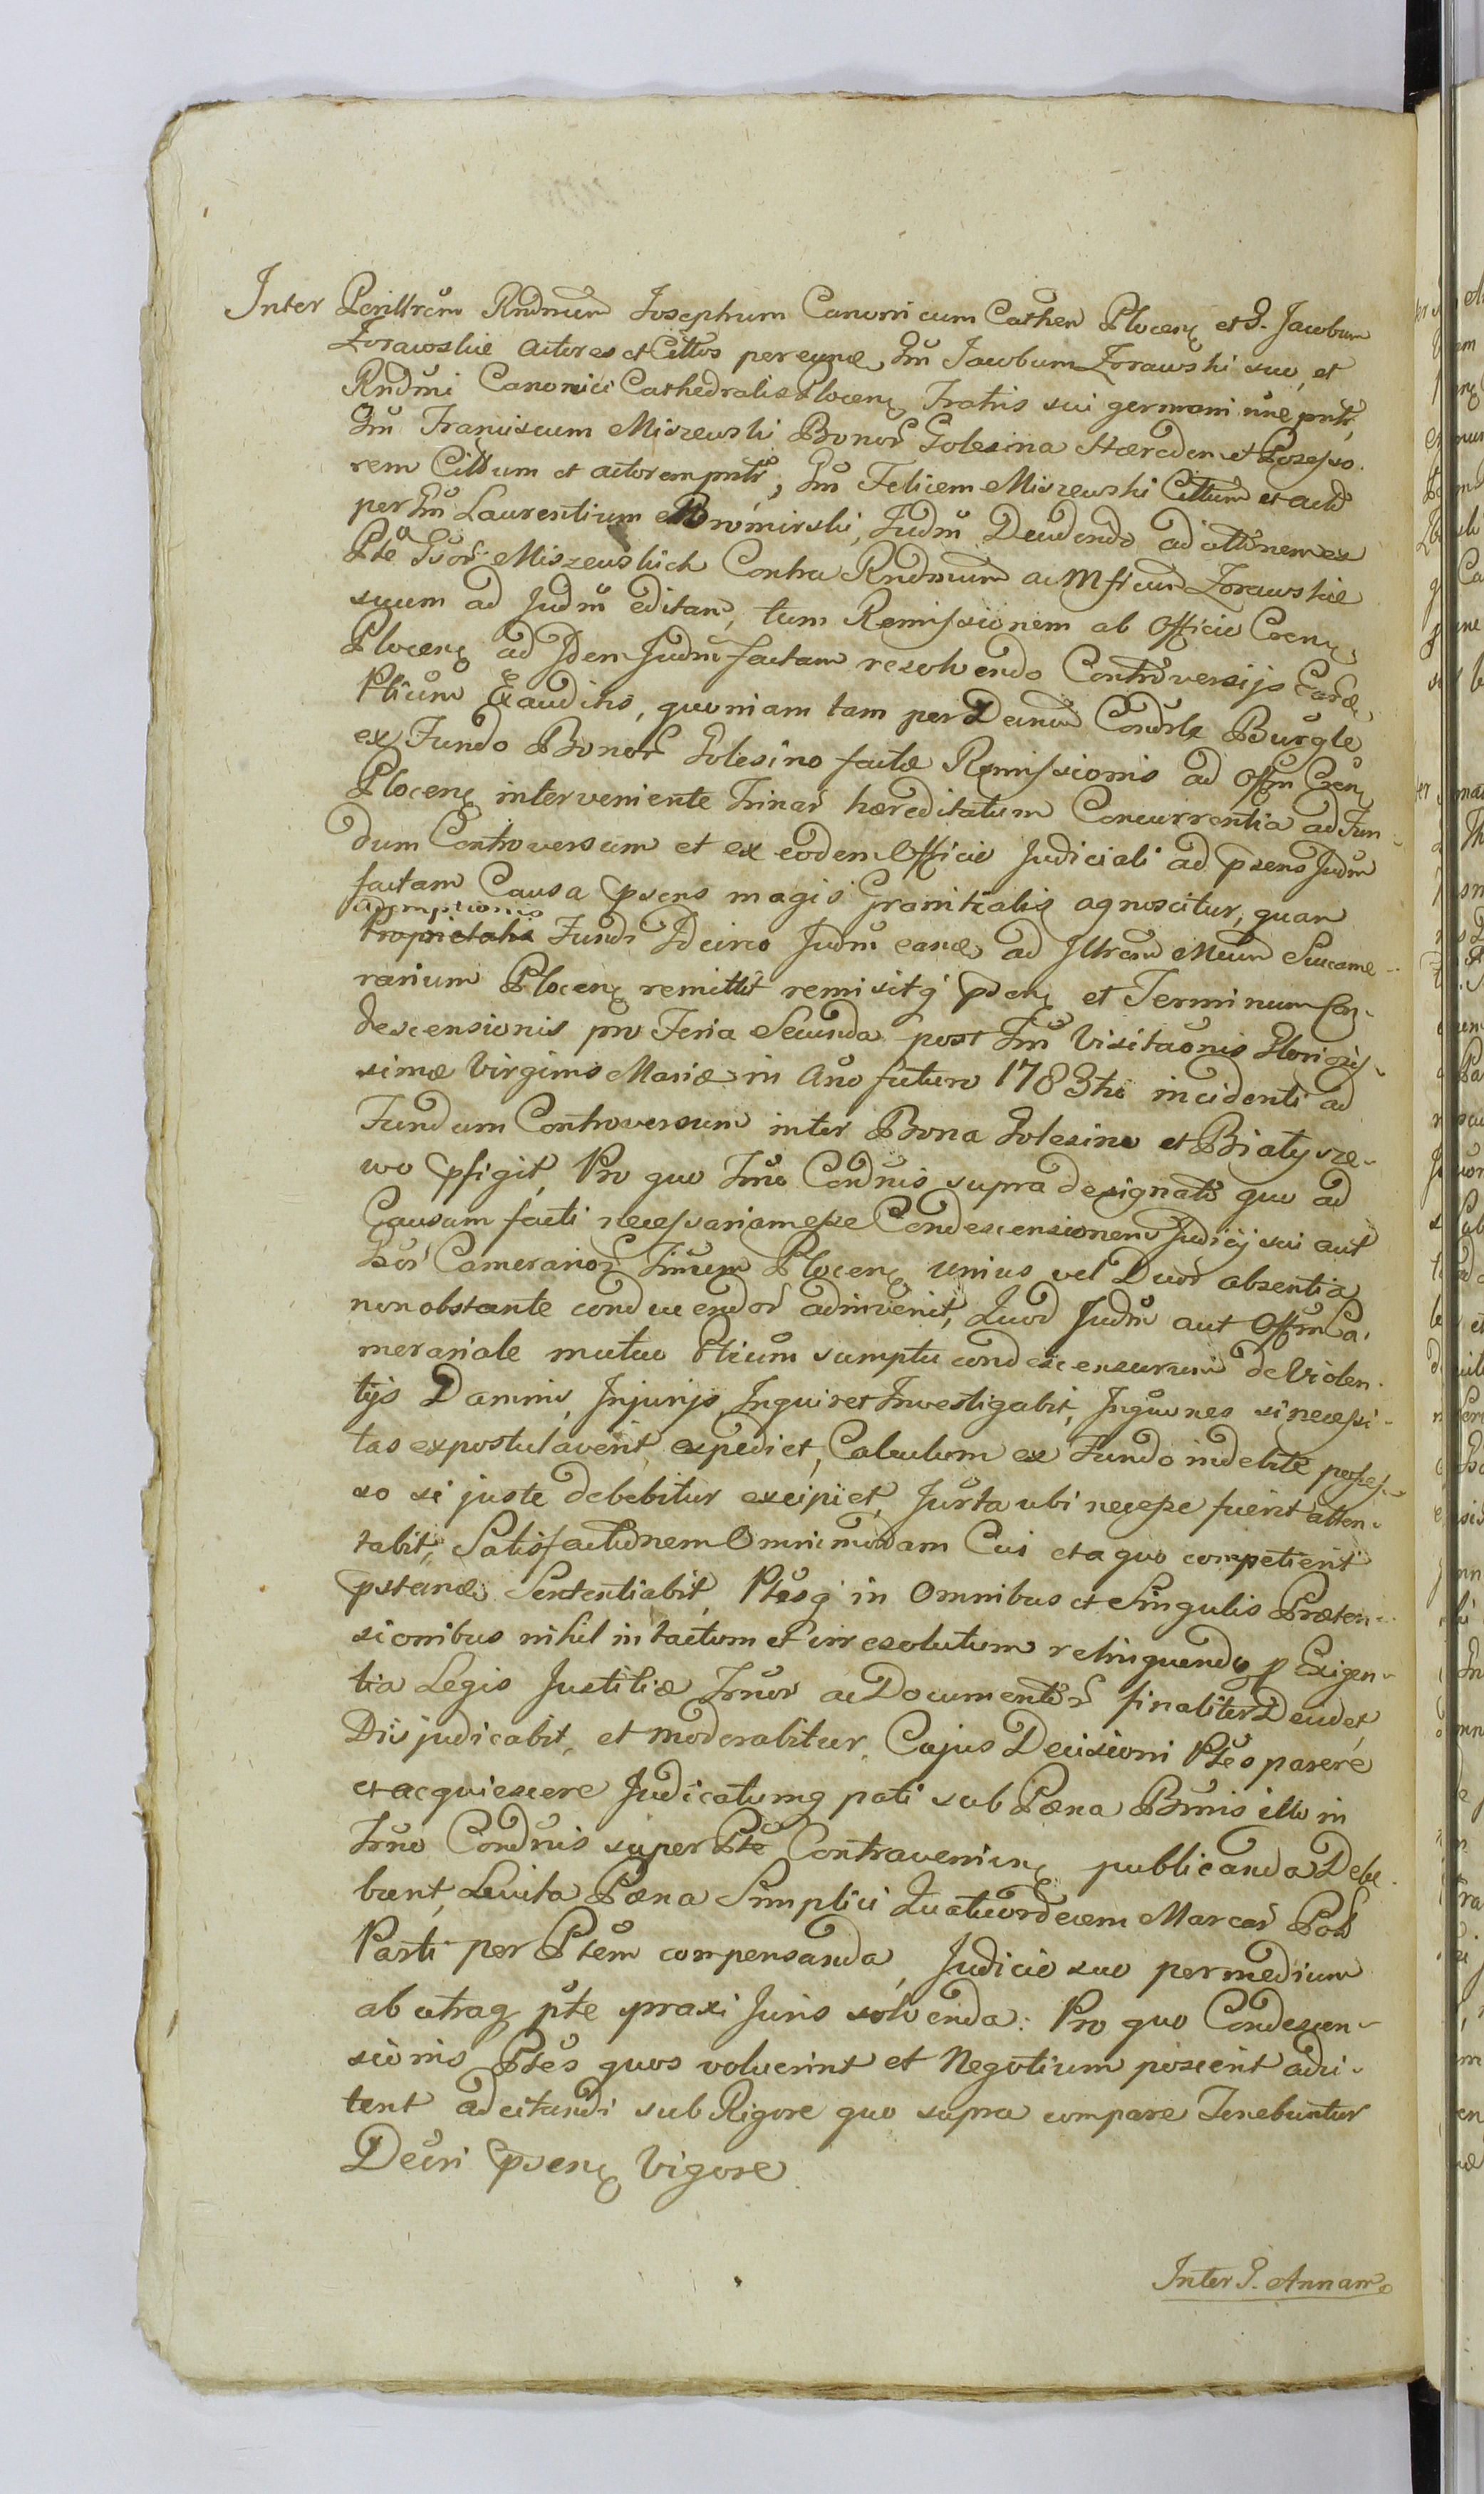 Inter Perillrem Rndmum Josephum Canonicum Cathen Plocens et G. Jacobum
Zorawskie actores et Cittos per eunde Gm Jacobum Zorawski suo, et
Rndmi Canonici Cathedralis Plocens Fratris sui germani nne pntr,
Gm Franciscum Miszewski Bonor Golesina Hæredem et Possesso-
rem Cittum et actorem pntr, Gm Felicem Miszewski Cittum et actr
per Gm Laurentium Bromirski, Judm Decidendo ad attionem ex
Pte Gsor Miszewskich Contra Rndmum ac Mficum Zorawskie
suum ad Judm editam, tum Remissionem ab Officio Cens
Plocens ad Idem Judm factam resolvendo Controversijs Earde
Ptium Exauditis, quoniam tam per Decum Condrle Burgle
ex Fundo Bonor Golesino factæ Remissionis ad Offm Cens
Plocens interveniente Trinar hæreditatum Concurrentia ad Fun-
dum Controversum et ex eodem Officio Judiciali ad psens Judm
factam Causa psens magis Granitialis agnoscitur, quam
ademptionis
Proprietatis Fundi Idcirco Judm eande ad Illrem Mcum Succame-
rarium Plocens remittit remisitq psens et Terminum Con-
descensionis pro Feria Secunda post Fm Visitaonis Gloriosis-
simæ Virginis Mariæ in Ano futuro 1783tio incidenti ad
Fundum Controversum inter Bona Golesino et Bialysze-
wo pfigit, Pro quo Tmno Condnis supra designato quo ad
Causam facti necessariam esse Condescensionem Judicij sui aut
Gsor Camerarior Trium Plocens unius vel Duor absentia
non obstante conducendor adinvenit, Quod Judm aut Offm Ca-
merariale mutuo Ptium sumptu condescensurum de Violen-
tijs Damnis, Injurijs Inquiret Investigabit, Inquones si necessi-
tas expostulaverit expediet, Calculum ex Fundo indebite posses-
so si juste debebitur excipiet, Jurta ubi necesse fuerit atten-
tabit, Satisfactionem Omnimodam Cui et a quo competierit
pstanda Sententiabit, Ptesq in Omnibus et Singulis Præten-
sionibus nihil intactum et irresolutum relinquendo p Exigen-
tia Legis Justitiæ Jrum ac Documentor finaliter Decidet
Disjudicabit, et moderabitur. Cujus Decisioni Ptes parere
et acquiescere Judicatumq pati sub Pæna Bnnis illo in
Tmno Condnis super Pte Contraveniens publicanda Debe-
bunt, Levita Pæna Simplici Quatuordecem Marcar Pol
Parti per Ptem compensanda, Judicio suo per medium
ab utraq pte praxi Juris solvenda: Pro quo Condescen-
sionis Ptes quos voluerint et Negotium poscerit adci-
tent adcitandi sub Rigore quo supra compare Tenebuntur
Decri psens Vigore
Inter G. Annam